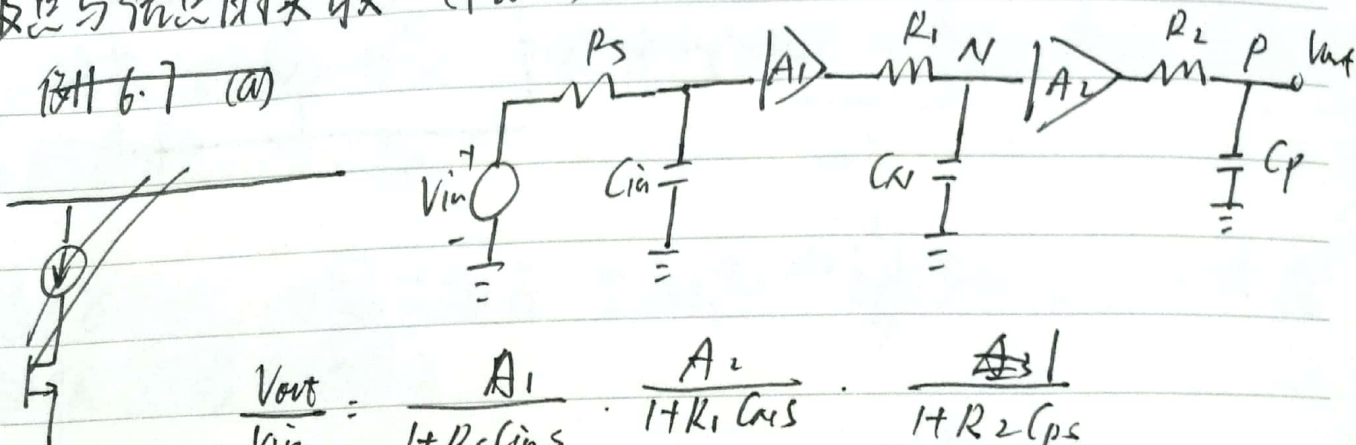 极点与结点的关联
例 6.7 (a)
Rs A1 R1 N A2 R2 P Vout
Vin + - Cin CN Cp
Vout/Vin = A1/(1+RsCins) · A2/(1+R1CNs) · 1/(1+R2Cps)